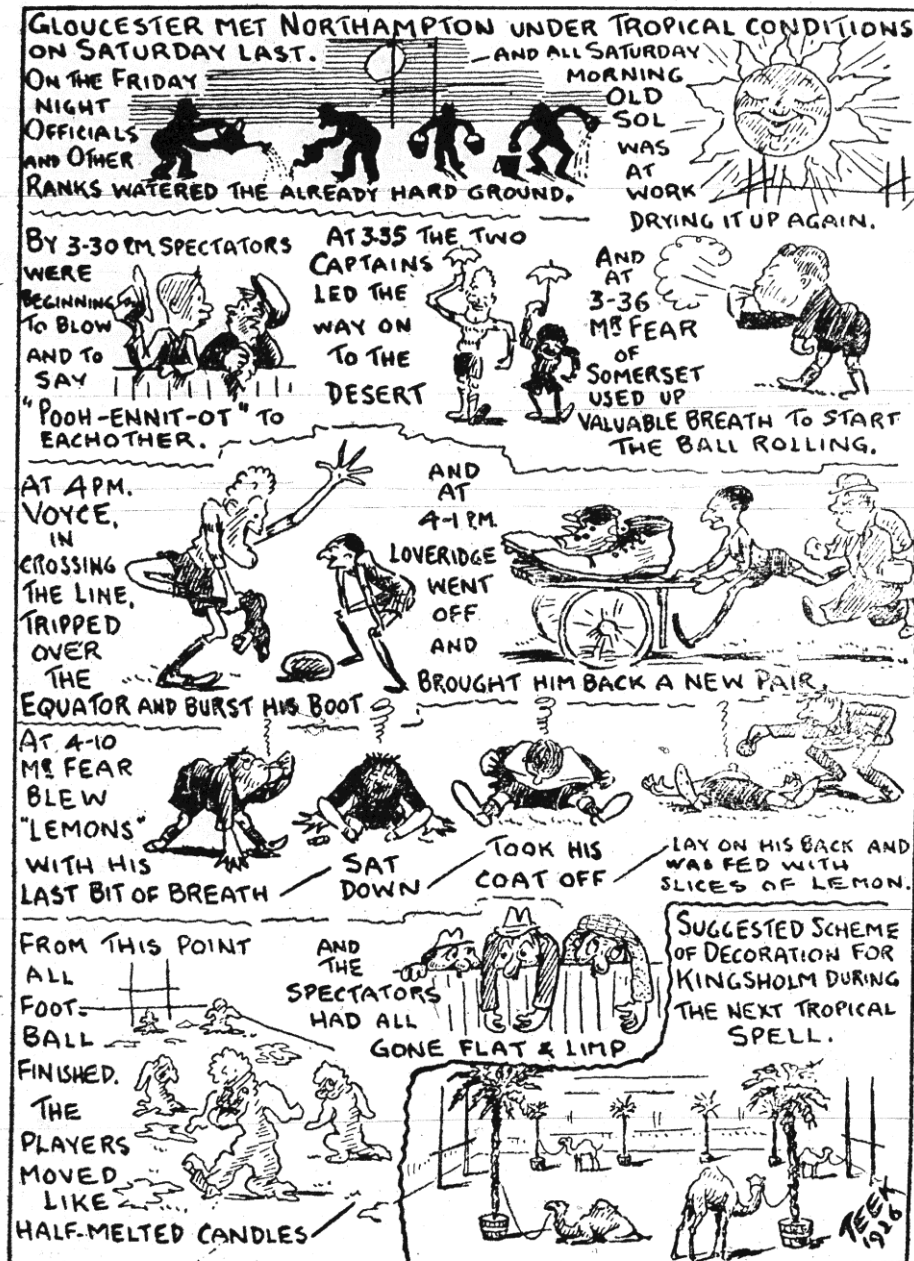 GLOUCESTER MET NORTHAMPTON UNDER TROPICAL CONDITIONS
ON SATURDAY LAST.
ON THE FRIDAY
NIGHT
OFFICIALS
AND OTHER
RANKS WATERED THE ALREADY HARD GROUND.
—AND ALL SATURDAY
MORNING
OLD
SOL
WAS
AT
WORK
DRYING IT UP AGAIN.
BY 3-30 PM, SPECTATORS
WERE
BEGINNING
TO BLOW
AND TO
SAY
"POOH-ENNIT-OT" TO
EACHOTHER.
AT 3.35 THE TWO
CAPTAINS
LED THE
WAY ON
TO THE
DESERT
AND
AT
3-36
MR FEAR
OF
SOMERSET
USED UP
VALUABLE BREATH TO START
THE BALL ROLLING.
AT 4PM.
VOYCE,
IN
CROSSING
THE LINE,
TRIPPED
OVER
THE
EQUATOR AND BURST HIS BOOT
AND
AT
4-1 P.M.
LOVERIDGE
WENT
OFF
AND
BROUGHT HIM BACK A NEW PAIR.
AT 4-10
MR FEAR
BLEW
"LEMONS"
WITH HIS
LAST BIT OF BREATH
SAT
DOWN
TOOK HIS
COAT OFF
LAY ON HIS BACK AND
WAS FED WITH
SLICES OF LEMON.
FROM THIS POINT
ALL
FOOT-
BALL
FINISHED.
THE
PLAYERS
MOVED
LIKE
HALF-MELTED CANDLES
AND
THE
SPECTATORS
HAD ALL
GONE FLAT & LIMP
SUGGESTED SCHEME
OF DECORATION FOR
KINGSHOLM DURING
THE NEXT TROPICAL
SPELL.
TEEK
1926